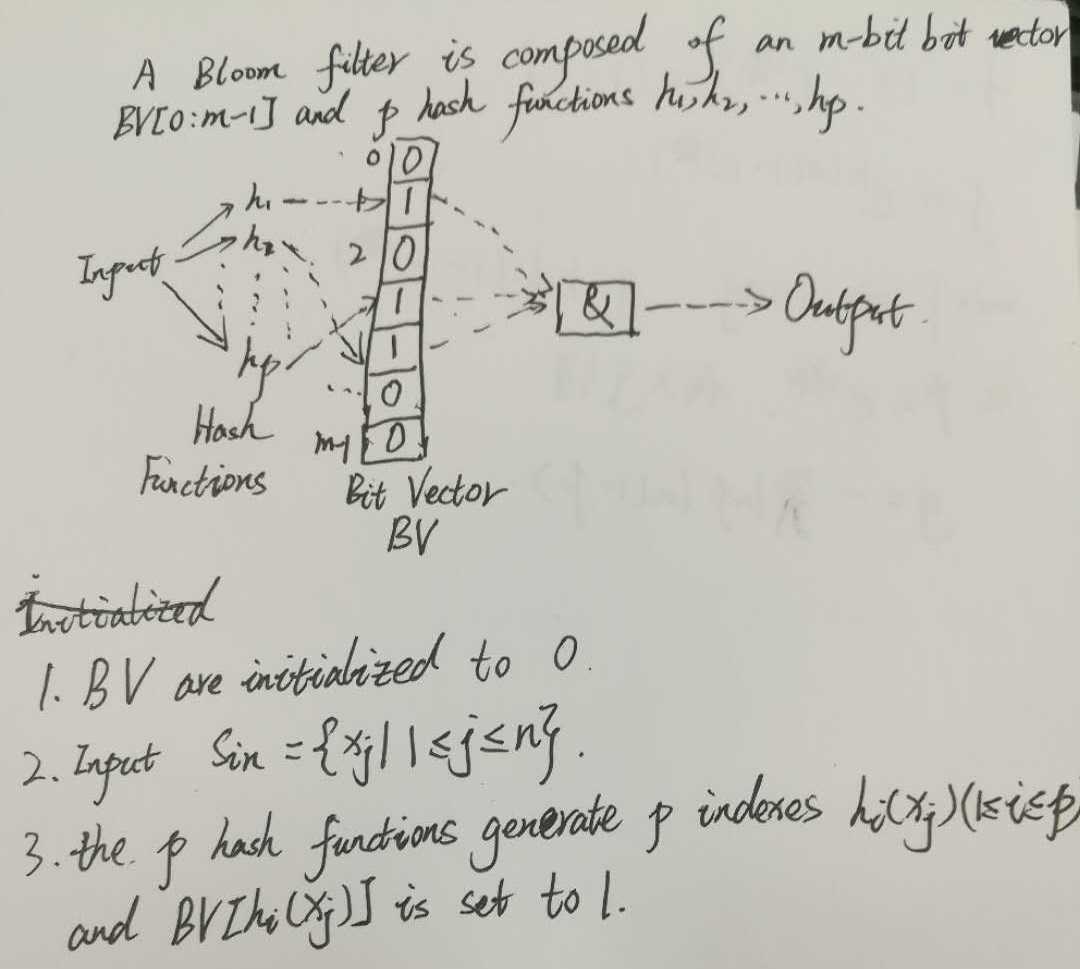 A Bloom filter is composed of an m-bit bit vector
BV[0:m-1] and p hash functions h1, h2, ..., hp.
0 0
h1 1 1
Input h2 2 0
1 & Output.
1
hp
... 0
Hash m-1 0
Functions Bit Vector
BV
Initialized
1. BV are initialized to 0.
2. Input Sin = {xj | 1≤j≤n}.
3. the p hash functions generate p indexes hi(xj)(1≤i≤p)
and BV[hi(xj)] is set to 1.